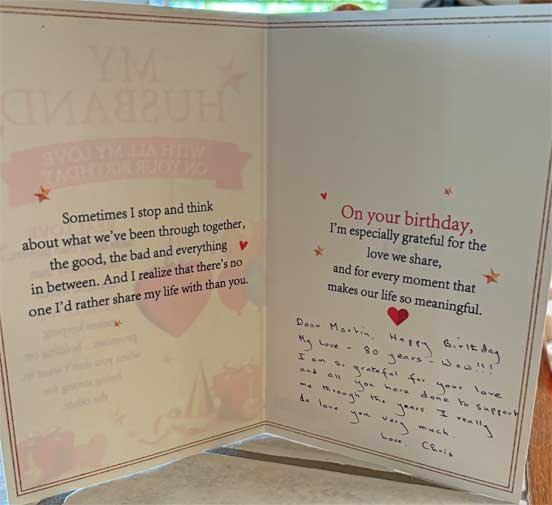 MY
HUSBAND
WITH ALL MY LOVE
ON YOUR BIRTHDAY
Sometimes I stop and think
about what we've been through together,
the good, the bad and everything
in between. And I realize that there's no
one I'd rather share my life with than you.
On your birthday,
I'm especially grateful for the
love we share,
and for every moment that
makes our life so meaningful.
Dear Martin, Happy Birthday
My Love - 80 years - Wow!!!
I am so grateful for your love
and all you have done to support
me through the years. I really
do love you very much.
Love, Chris